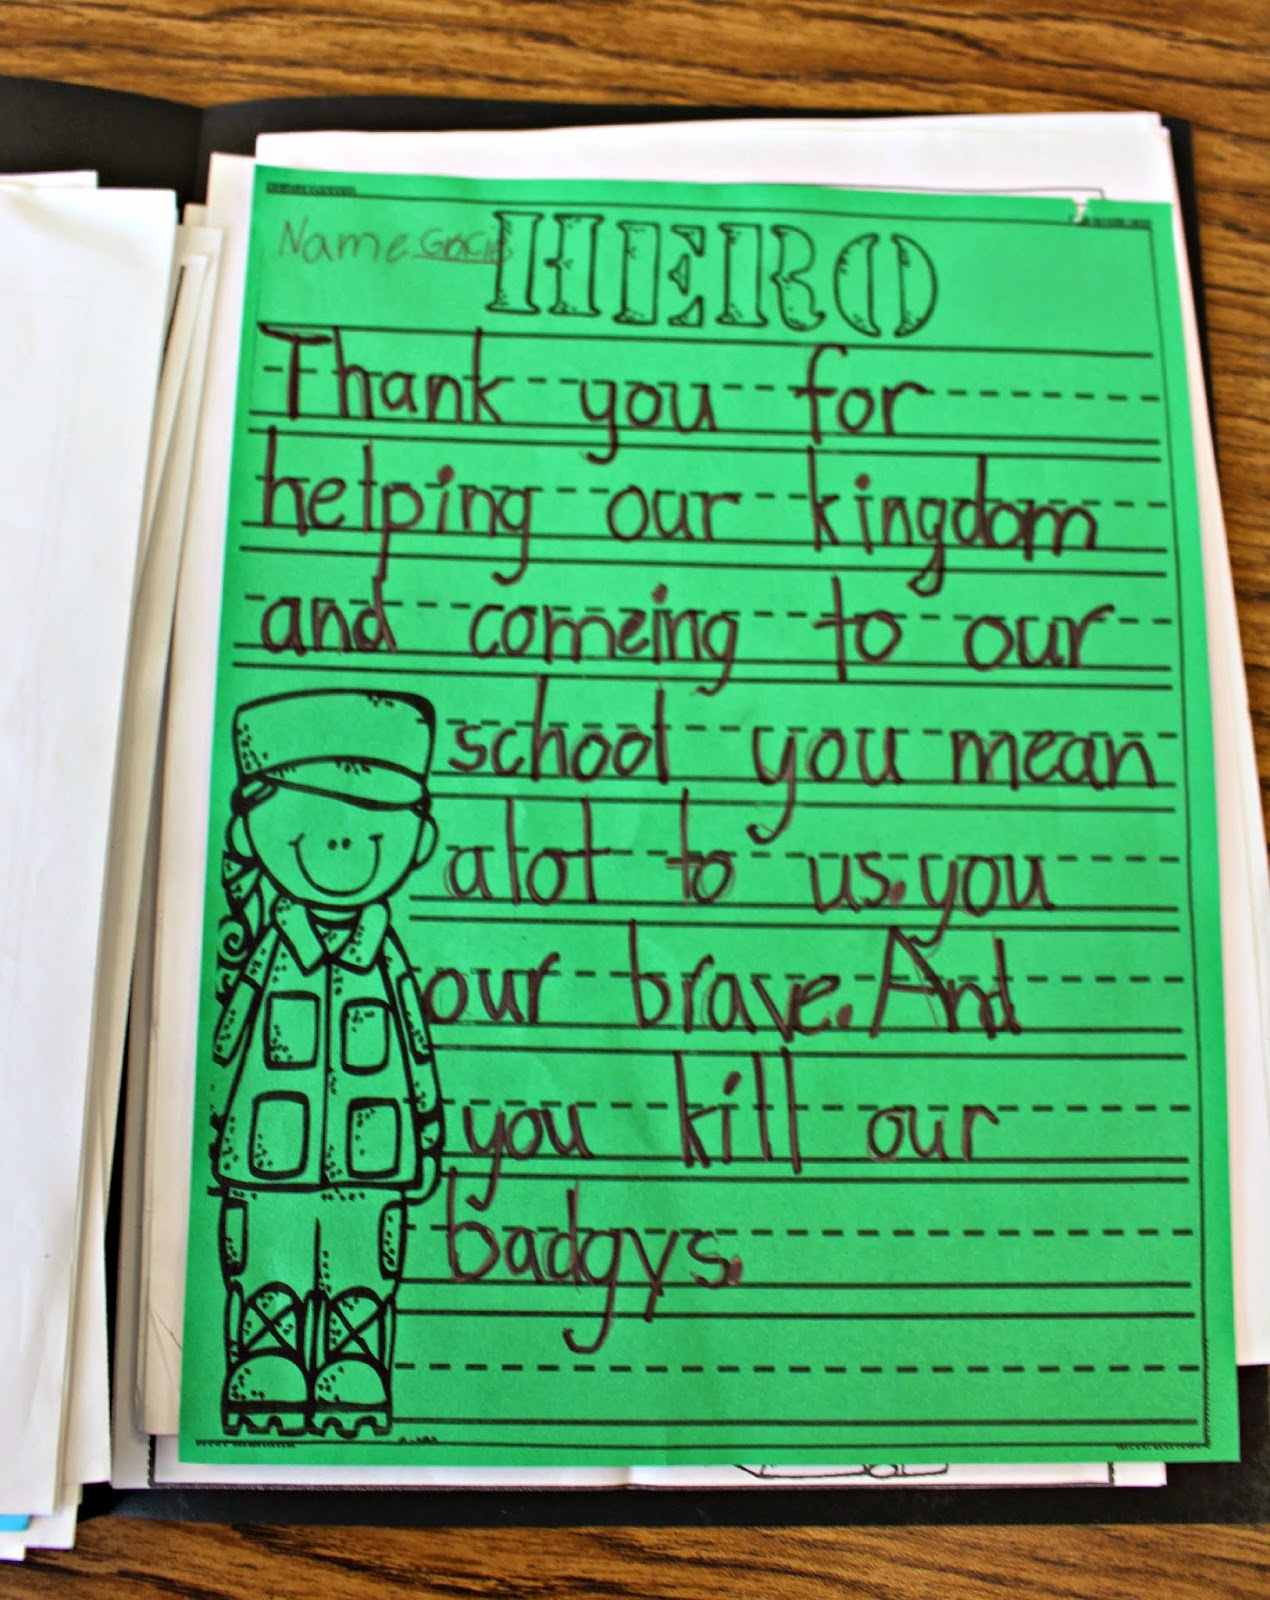 Name Gracie
HERO
Thank you for
helping our kingdom
and comeing to our
school you mean
alot to us. you
our brave. And
you kill our
badgys.